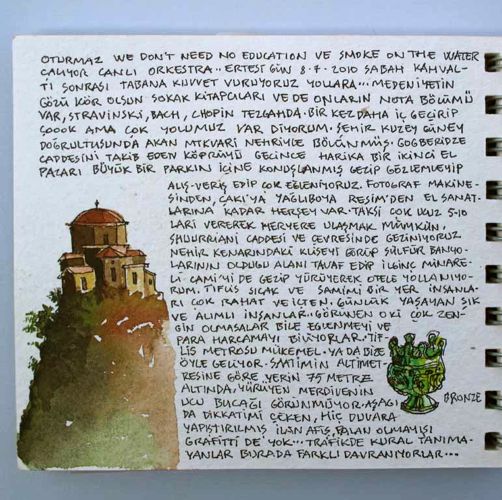 OTURMAZ WE DON'T NEED NO EDUCATION VE SMOKE ON THE WATER
ÇALIYOR CANLI ORKESTRA.. ERTESİ GÜN 8.7.2010 SABAH KAHVAL-
TI SONRASI TABANA KUVVET VURUYORUZ YOLLARA... MEDENİYETİN
GÖZÜ KÖR OLSUN SOKAK KİTAPÇILARI VE DE ONLARIN NOTA BÖLÜMÜ
VAR, STRAVİNSKİ, BACH, CHOPIN TEZGAHDA. BİR KEZ DAHA İÇ GEÇİRİP
ÇOOOK AMA ÇOK YOLUMUZ VAR DİYORUM. ŞEHİR KUZEY GÜNEY
DOĞRULTUSUNDA AKAN MTKVARİ NEHRİYLE BÖLÜNMÜŞ. GOGBERİDZE
CADDESİNİ TAKİB EDEN KÖPRÜYÜ GEÇİNCE HARİKA BİR İKİNCİ EL
PAZARI BÜYÜK BİR PARKIN İÇİNE KONUŞLANMIŞ GEZİP GÖZLEMLEYİP
ALIŞ-VERİŞ EDİP ÇOK EĞLENİYORUZ. FOTOGRAF MAKİNE-
SİNDEN, ÇAKI'YA YAĞLIBOYA RESİM'DEN EL SANAT-
LARINA KADAR HERŞEY VAR. TAKSİ ÇOK UCUZ 5-10
LARİ VEREREK HERYERE ULAŞMAK MÜMKÜN,
SHUURDIANI CADDESİ VE ÇEVRESİNDE GEZİNİYORUZ
NEHİR KENARINDAKİ KLİSEYİ GÖRÜP SÜLFÜR BANYO-
LARININ OLDUGU ALANI TAVAF EDİP İLGİNÇ MİNARE-
Lİ CAMİ'Yİ DE GEZİP YÜRÜYEREK OTELE YOLLANIYO-
RUM. TİFLİS SICAK VE SAMİMİ BİR YER İNSANLA-
RI ÇOK RAHAT VE İÇTEN. GÜNLÜK YAŞAYAN ŞIK
VE ALIMLI İNSANLAR. GÖRÜNEN O Kİ ÇOK ZEN-
GİN OLMASALAR BİLE EĞLENMEYİ VE
PARA HARCAMAYI BİLİYORLAR. TİF-
LİS METROSU MÜKEMEL. YA DA BİZE
ÖYLE GELİYOR. SAATİMİN ALTİMET-
RESİNE GÖRE YERİN 75 METRE
ALTINDA. YÜRÜYEN MERDİVENİN
UCU BUCAĞI GÖRÜNMÜYOR. AŞAĞI
DA DİKKATİMİ ÇEKEN, HİÇ DUVARA
YAPIŞTIRILMIŞ İLAN AFİŞ, FALAN OLMAYIŞI
GRAFİTTİ DE YOK... TRAFİKDE KURAL TANIMA-
YANLAR BURADA FARKLI DAVRANIYORLAR...
BRONZE